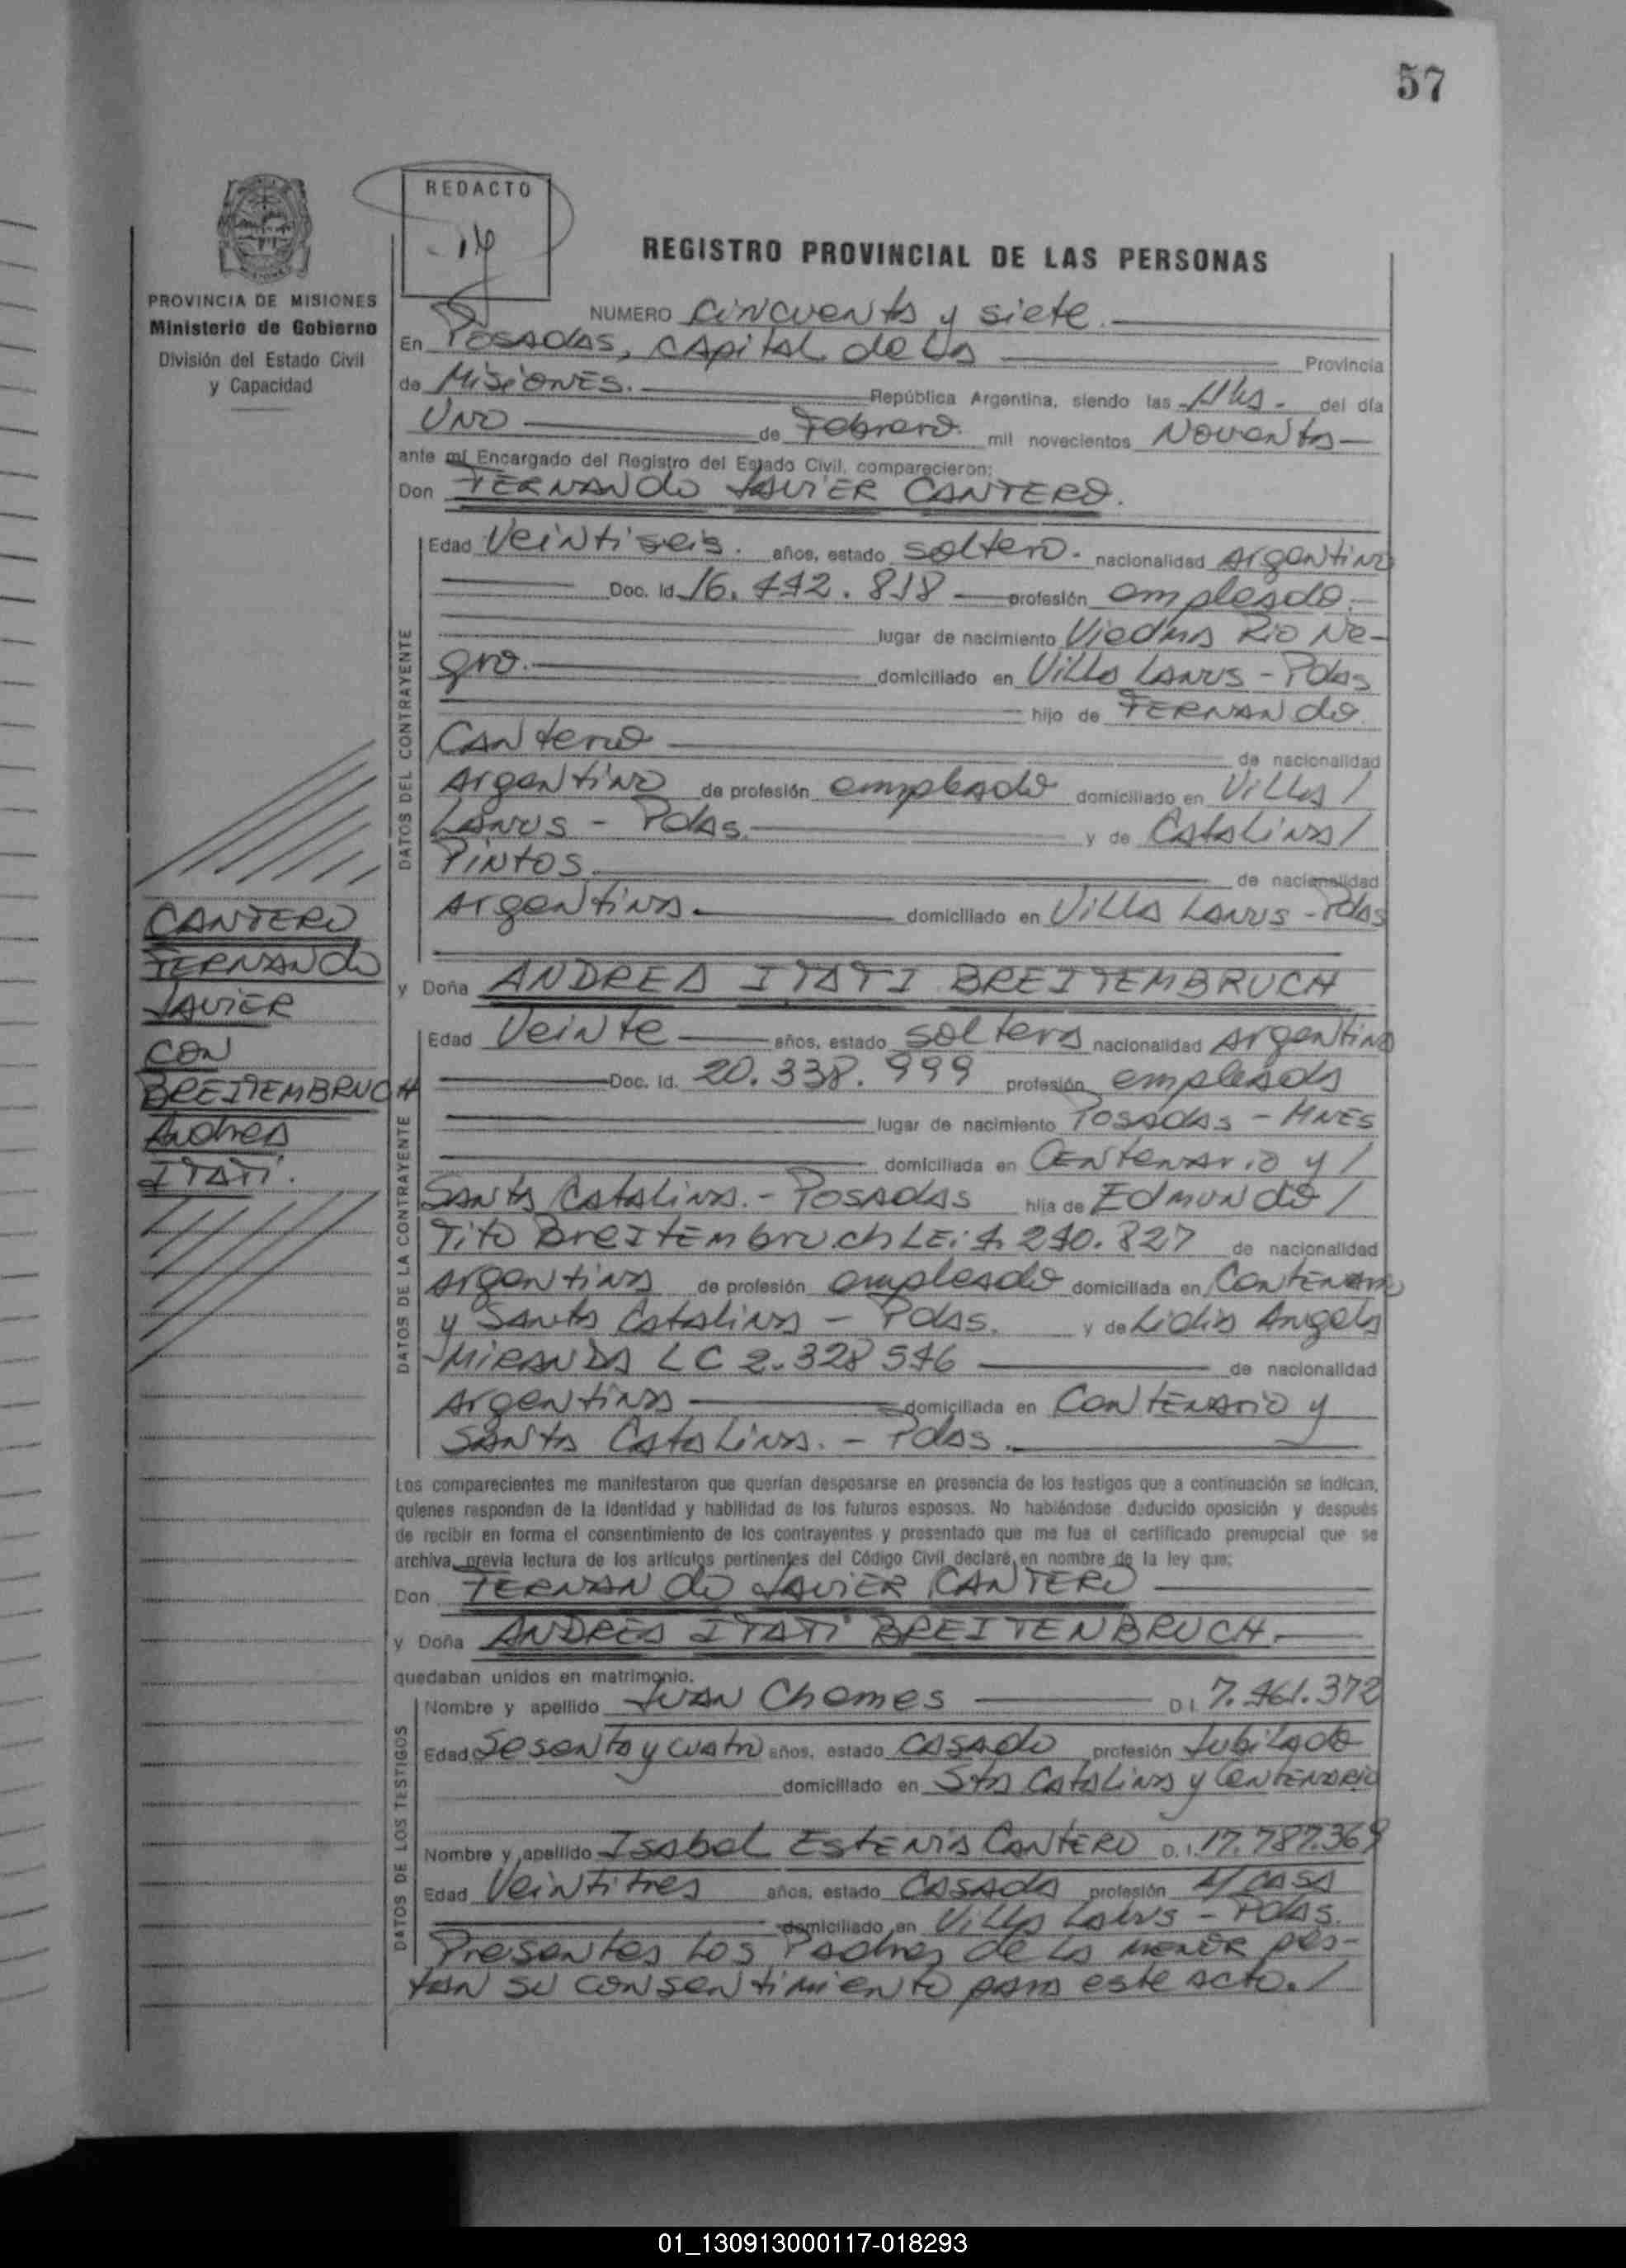 57
REDACTO
REGISTRO PROVINCIAL DE LAS PERSONAS
PROVINCIA DE MISIONES
Ministerio de Gobierno
División del Estado Civil
y Capacidad
NUMERO Cincuenta y siete.
En Posadas, capital de la Provincia
de Misiones. República Argentina, siendo las 11hs. del día
Uno de Febrero mil novecientos Noventa
ante mí Encargado del Registro del Estado Civil, comparecieron:
Don FERNANDO JAVIER CANTERO.
DATOS DEL CONTRAYENTE
Edad Veintiseis. años, estado soltero. nacionalidad Argentino
Doc. Id. 16.442.818 profesión empleado.
lugar de nacimiento Viedma Rio Ne-
gro. domiciliado en Villa Lanus - Pdas
hijo de FERNANDO
Cantero de nacionalidad
Argentino de profesión empleado domiciliado en Villa /
Lanus - Pdas. y de Catalina /
Pintos. de nacionalidad
Argentina. domiciliado en Villa Lanus - Pdas
CANTERO
FERNANDO
JAVIER
CON
BREITEMBRUCH
Andrea
ITATI.
y Doña ANDREA ITATI BREITEMBRUCH
DATOS DE LA CONTRAYENTE
Edad Veinte años, estado soltera nacionalidad Argentina
Doc. Id. 20.338.999 profesión empleada
lugar de nacimiento Posadas - Mnes
domiciliada en Centenario y /
Santa Catalina. - Posadas hija de Edmundo /
Tito Breitembruch LE: 4.240.827 de nacionalidad
Argentina de profesión empleado domiciliada en Centenario
y Santa Catalina - Pdas. y de Lidia Angela
MIRANDA LC 2.328546 de nacionalidad
Argentina domiciliada en Centenario y
Santa Catalina. - Pdas.
Los comparecientes me manifestaron que querían desposarse en presencia de los testigos que a continuación se indican,
quienes responden de la identidad y habilidad de los futuros esposos. No habiéndose deducido oposición y después
de recibir en forma el consentimiento de los contrayentes y presentado que me fue el certificado prenupcial que se
archiva, previa lectura de los artículos pertinentes del Código Civil declaré, en nombre de la ley que:
Don FERNANDO JAVIER CANTERO
y Doña ANDREA ITATI BREITENBRUCH.
quedaban unidos en matrimonio.
DATOS DE LOS TESTIGOS
Nombre y apellido Juan Chemes D.I. 7.461.372
Edad Sesenta y cuatro años, estado casado profesión Jubilado
domiciliado en Sta Catalina y Centenario
Nombre y apellido Isabel Estenia Cantero D.I. 17.787.369
Edad Veintitres años, estado casada profesión A/ CASA
domiciliado en Villa Lanus - Pdas.
Presentes los Padres de la menor pres-
tan su consentimiento para este acto. /
01_130913000117-018293